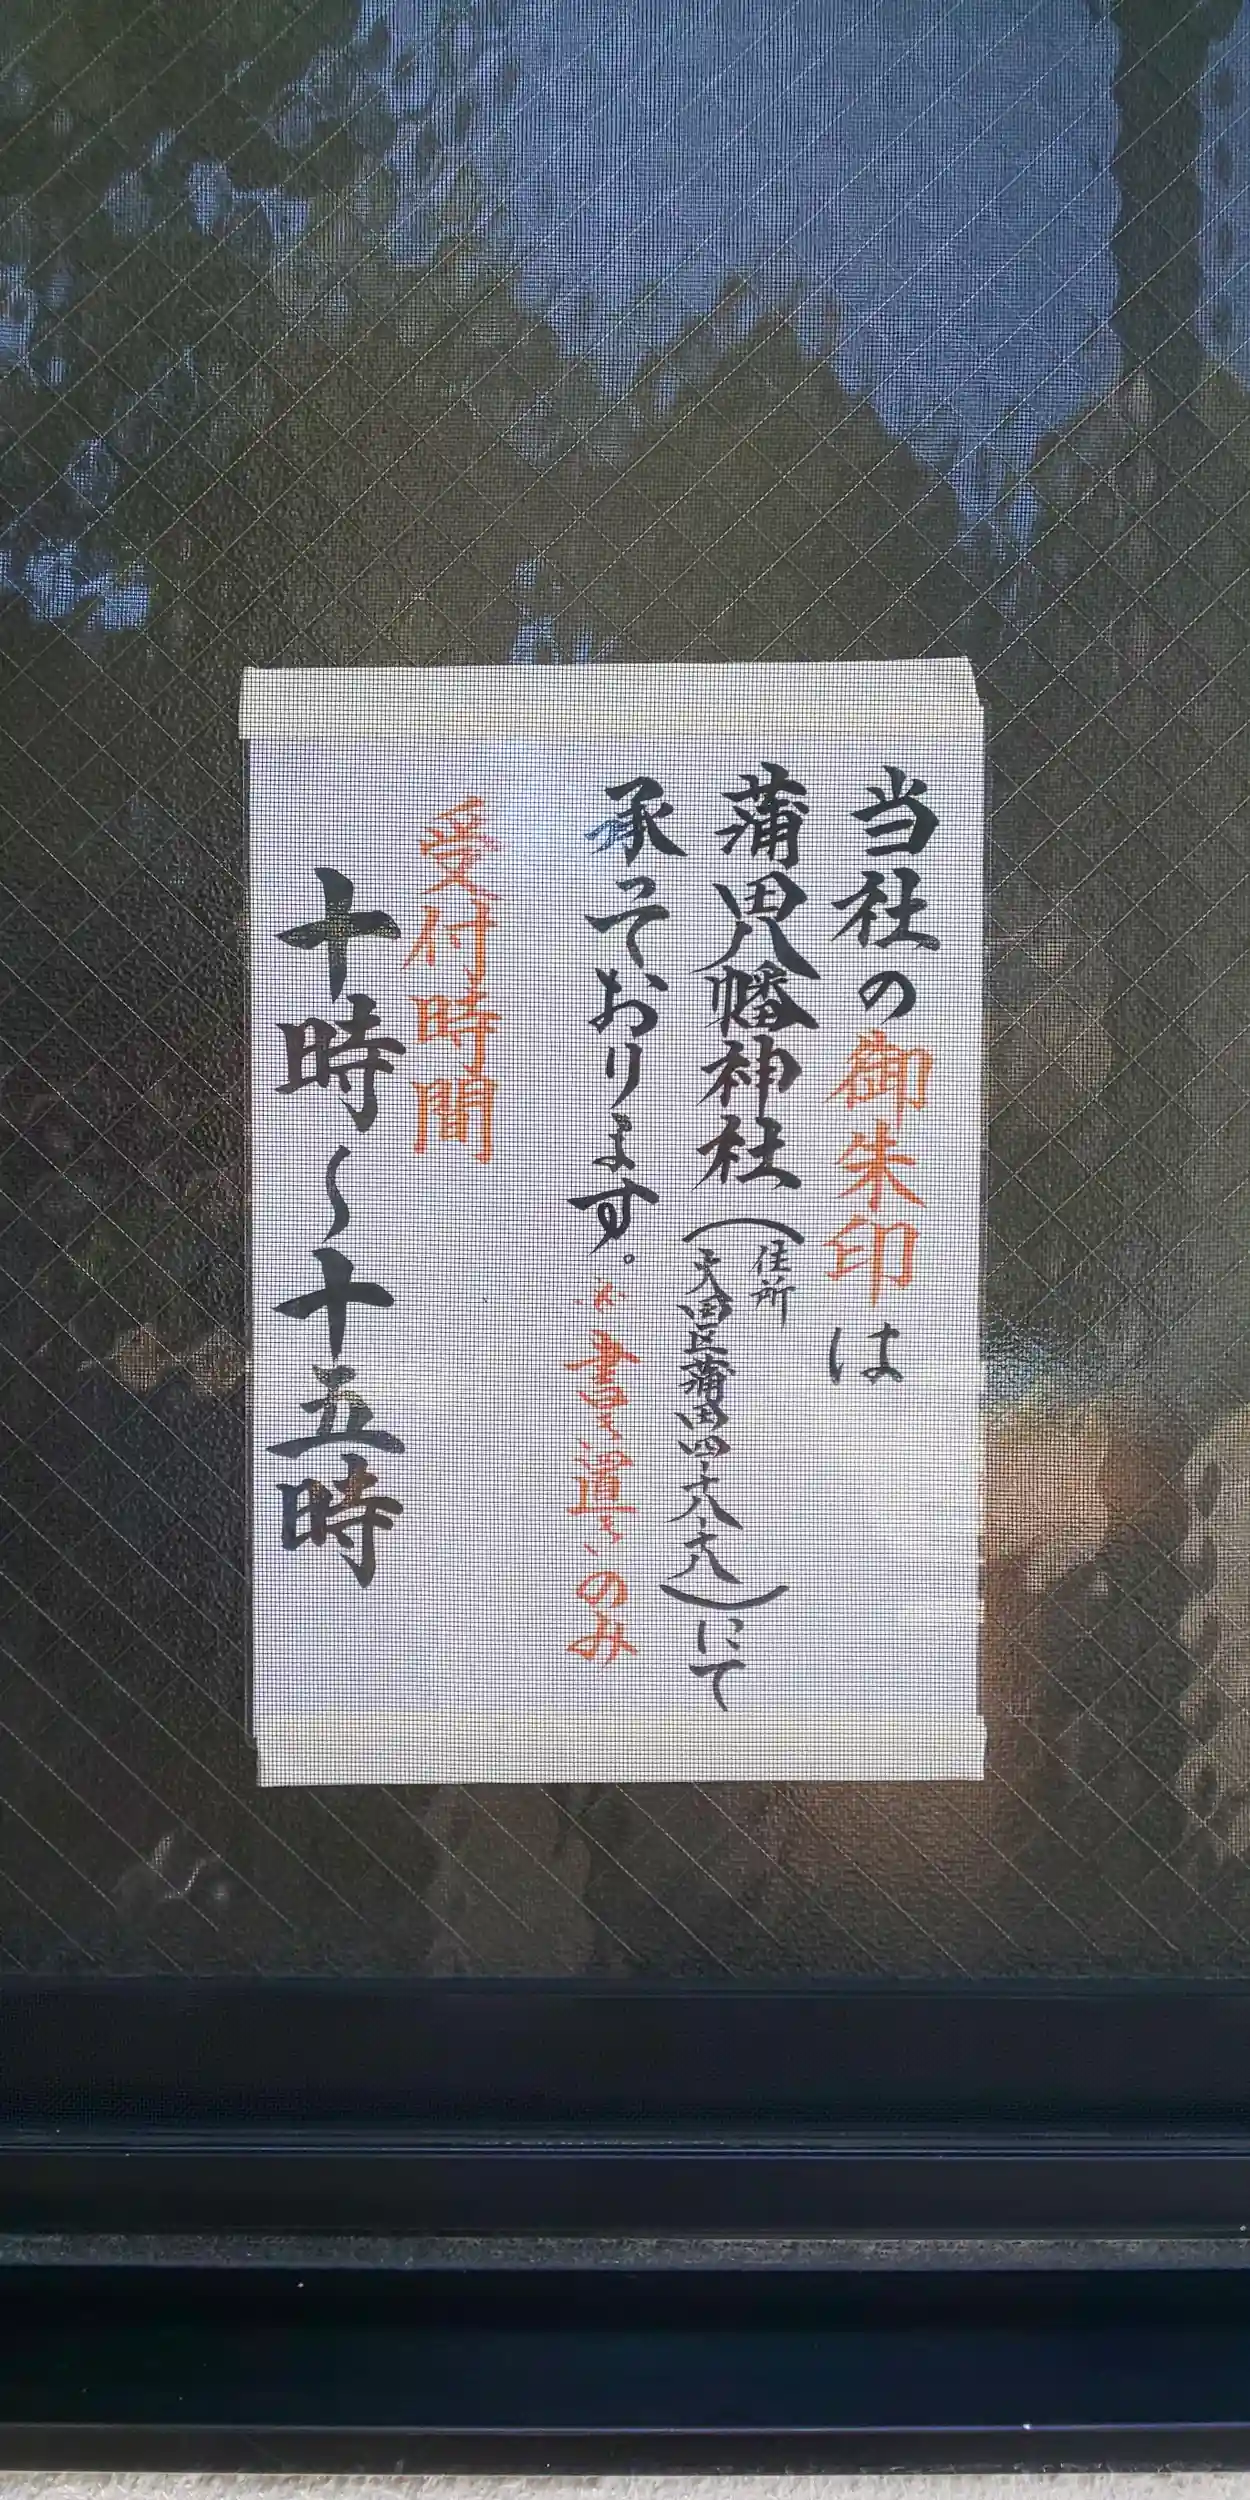 当社の御朱印は
蒲田八幡神社（住所
大田区蒲田四十八十八）にて
承っております。※書き置きのみ
受付時間
十時〜十五時